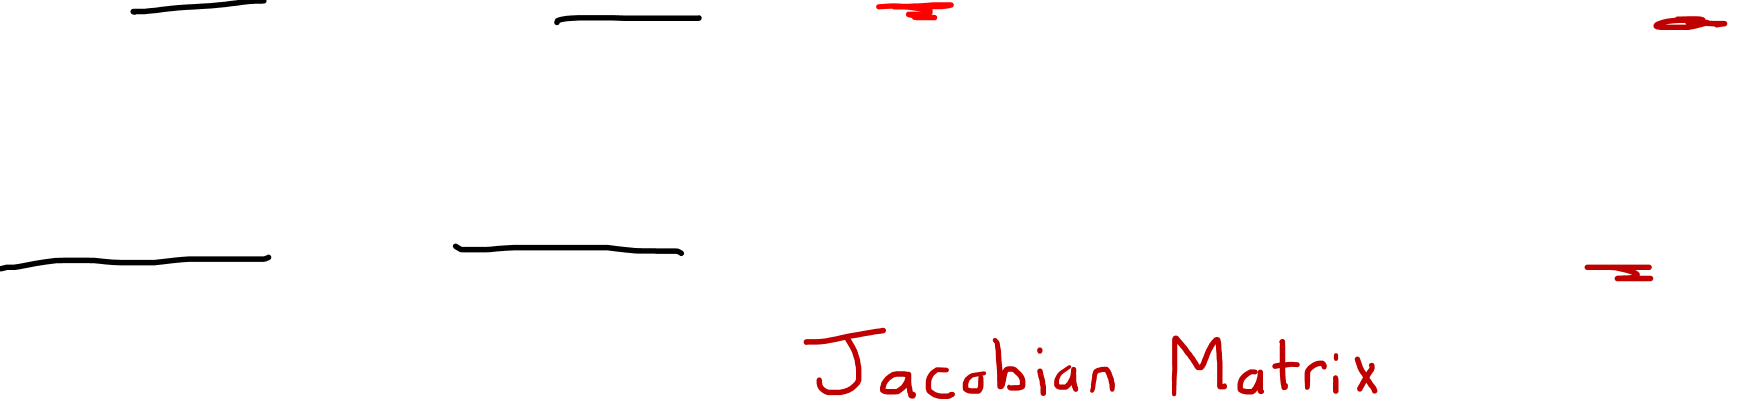 Jacobian Matrix